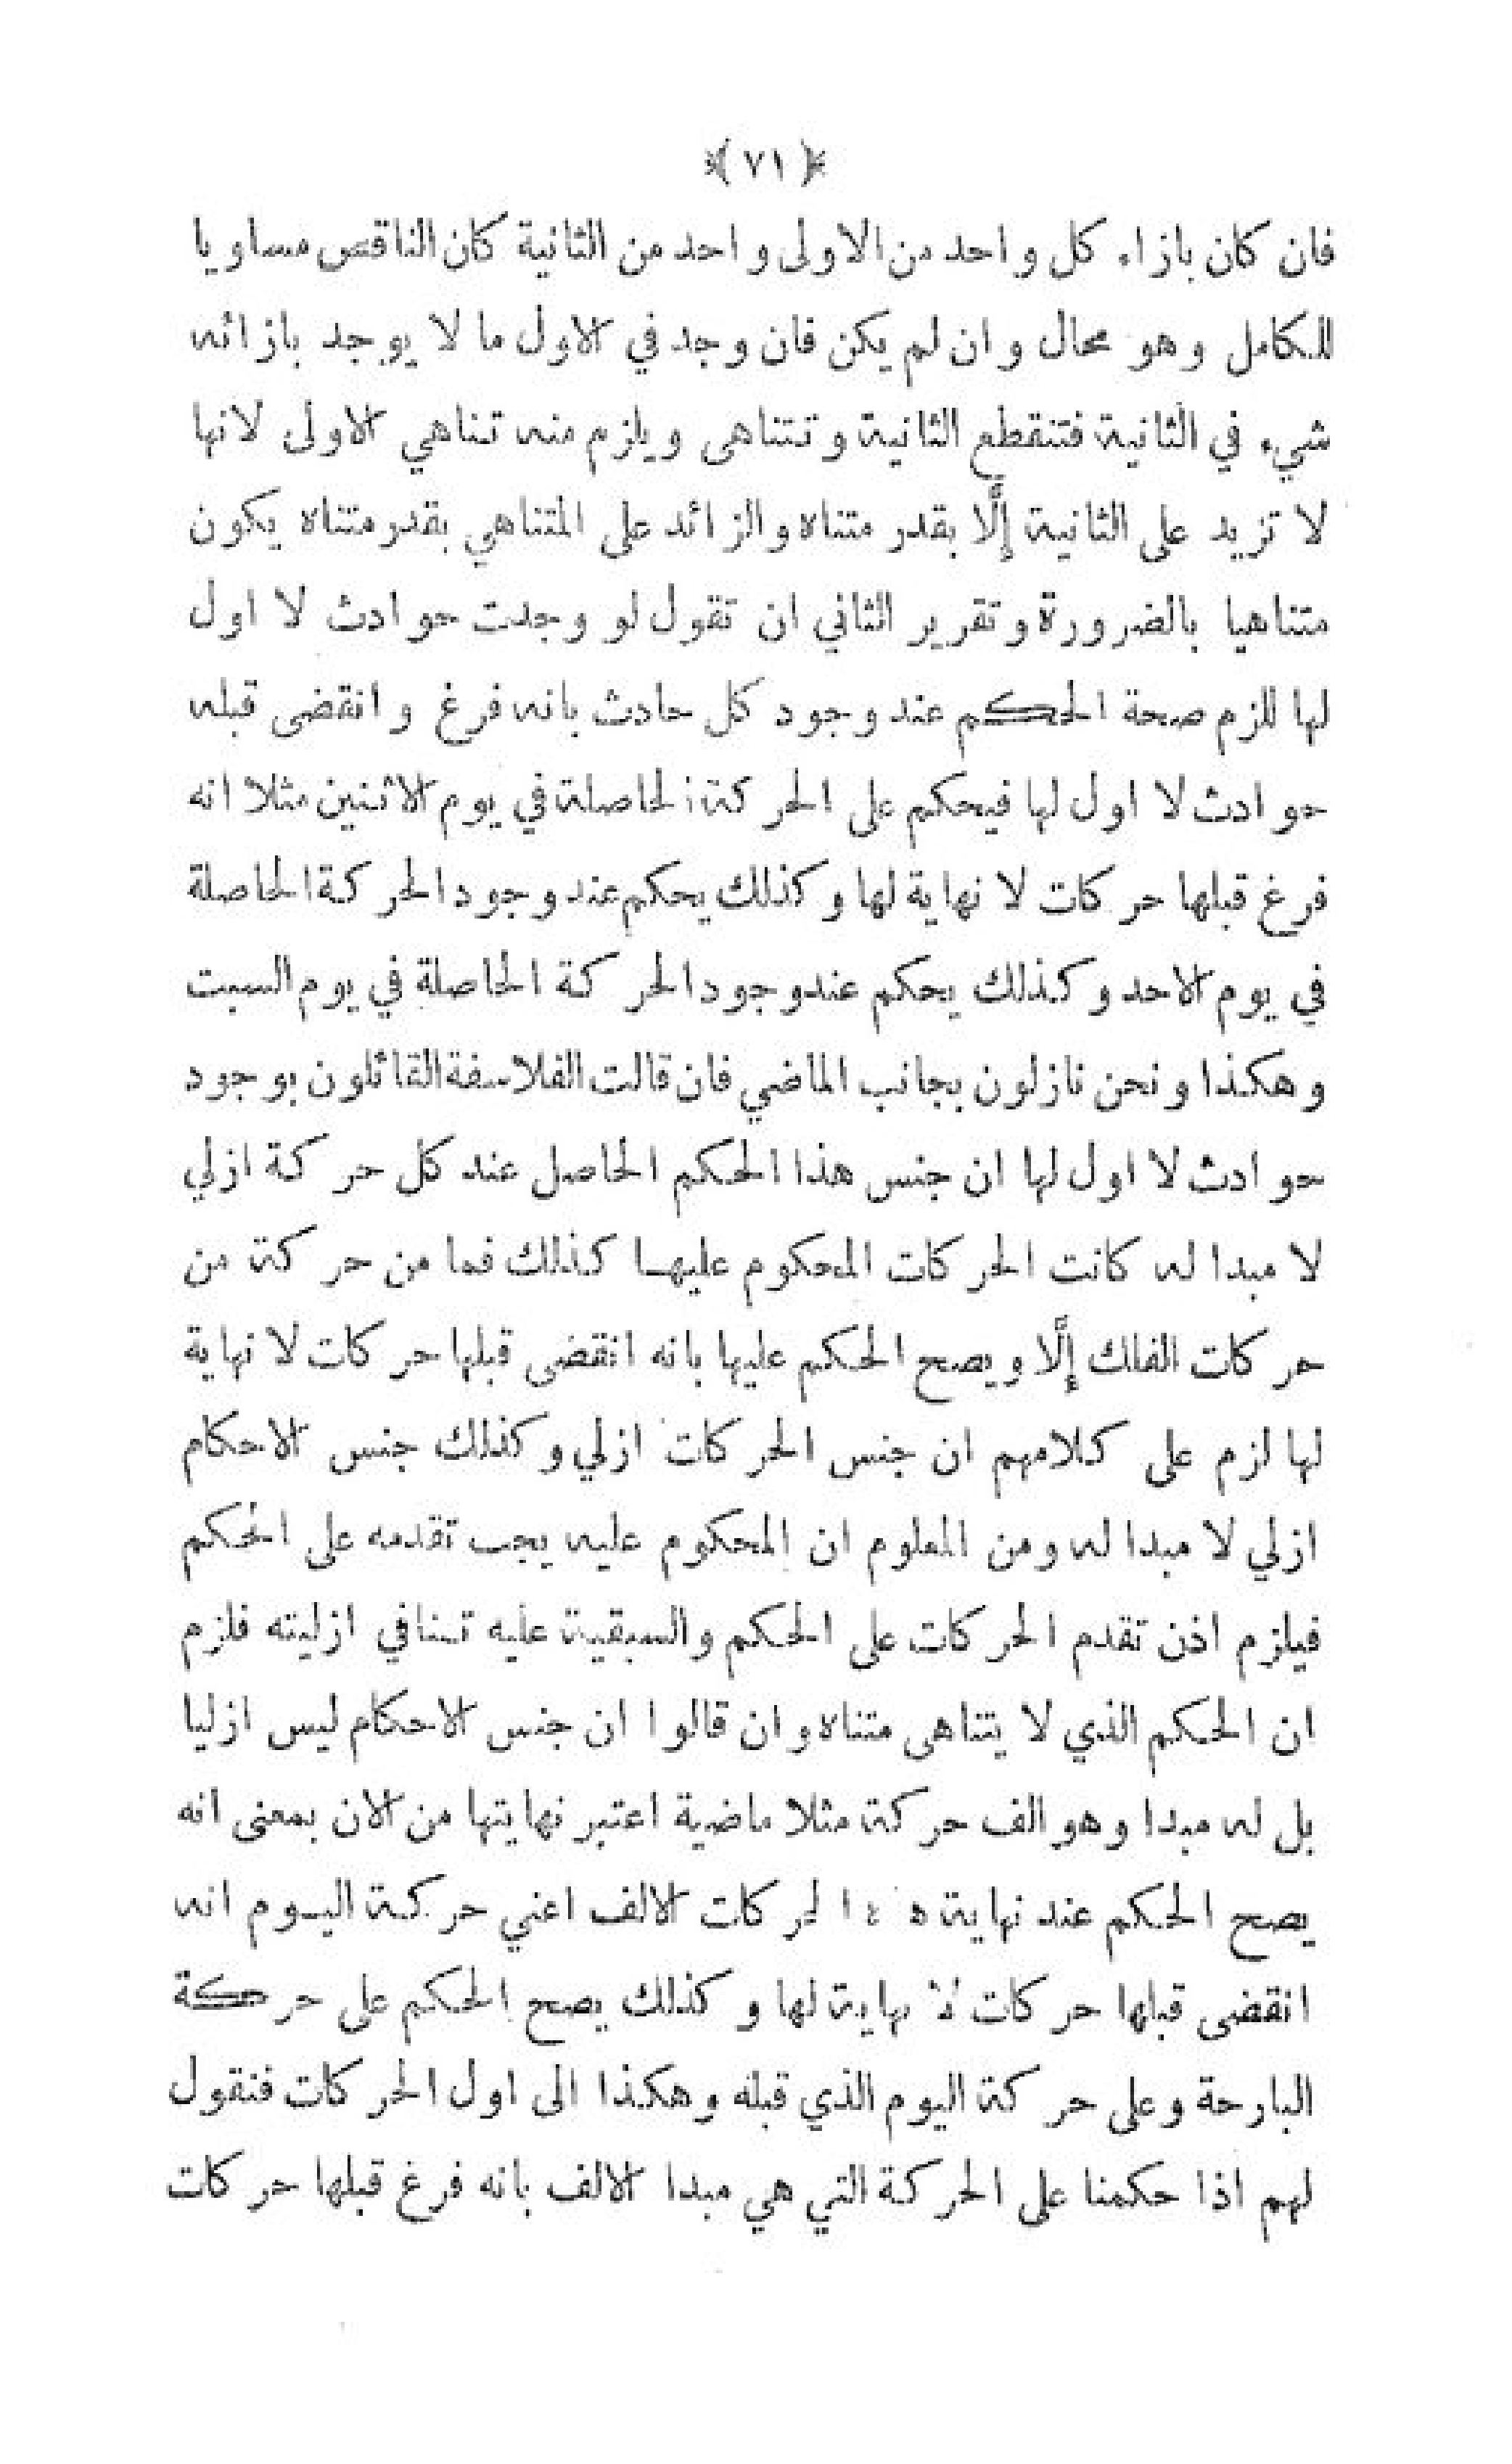 ﴿ ٧١ ﴾
فان كان بازاء كل واحد من الاولى واحد من الثانية كان الناقص مساويا
للكامل وهو محال وان لم يكن فان وجد في الاول ما لا يوجد بازائه
شيء في الثانية فتنقطع الثانية وتتناهى ويلزم منه تناهي الاولى لانها
لا تزيد على الثانية إلَّا بقدر متناه والزائد على المتناهي بقدر متناه يكون
متناهيا بالضرورة وتقرير الثاني ان تقول لو وجدت حوادث لا اول
لها للزم صحة الحكم عند وجود كل حادث بانه فرغ وانقضى قبله
حوادث لا اول لها فيحكم على الحركة الحاصلة في يوم الاثنين مثلا انه
فرغ قبلها حركات لا نهاية لها وكذلك يحكم عند وجود الحركة الحاصلة
في يوم الاحد وكذلك يحكم عند وجود الحركة الحاصلة في يوم السبت
وهكذا ونحن نازلون بجانب الماضي فان قالت الفلاسفة القائلون بوجود
حوادث لا اول لها ان جنس هذا الحكم الحاصل عند كل حركة ازلي
لا مبدا له كانت الحركات المحكوم عليها كذلك فما من حركة من
حركات الفلك إلَّا ويصح الحكم عليها بانه انقضى قبلها حركات لا نهاية
لها لزم على كلامهم ان جنس الحركات ازلي وكذلك جنس الاحكام
ازلي لا مبدا له ومن المعلوم ان المحكوم عليه يجب تقدمه على الحكم
فيلزم اذن تقدم الحركات على الحكم والسبقية عليه تنافي ازليته فلزم
ان الحكم الذي لا يتناهى متناه وان قالوا ان جنس الاحكام ليس ازليا
بل له مبدا وهو الف حركة مثلا ماضية اعتبر نهايتها من الان بمعنى انه
يصح الحكم عند نهاية الحركات الالف اعني حركة اليوم انه
انقضى قبلها حركات لا نهاية لها وكذلك يصح الحكم على حركة
البارحة وعلى حركة اليوم الذي قبله وهكذا الى اول الحركات فنقول
لهم اذا حكمنا على الحركة التي هي مبدا الالف بانه فرغ قبلها حركات